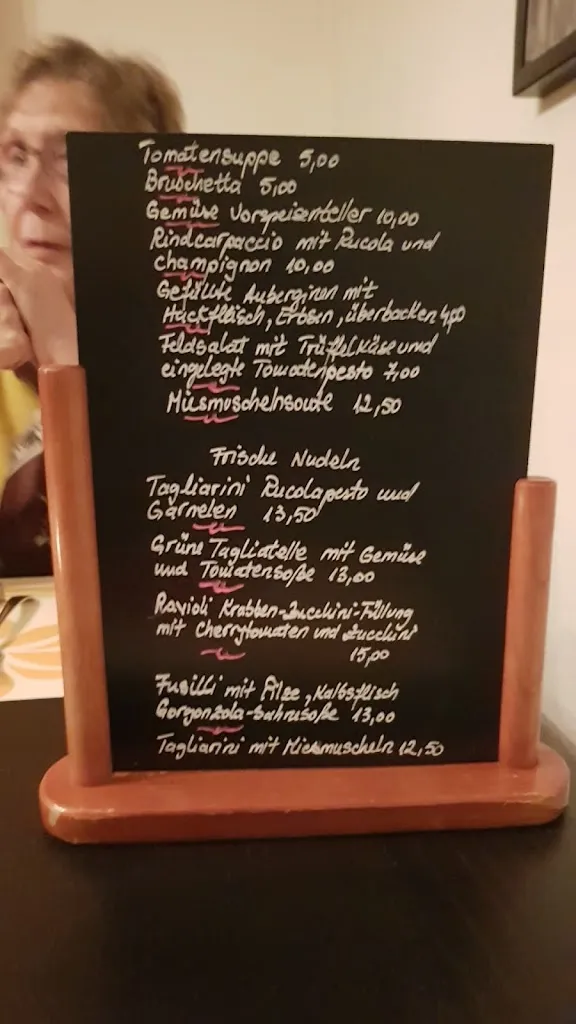 Tomatensuppe 5,00
Bruschetta 5,00
Gemüse Vorspeisenteller 10,00
Rindcarpaccio mit Rucola und
champignon 10,00
Gefüllte Auberginen mit
Hackfleisch, Erbsen, überbacken
Feldsalat mit Trüffelkäse und
eingelegte Tomatenpesto 7,00
Miesmuschelnsoute 12,50
Frische Nudeln
Tagliarini Rucolapesto und
Garnelen 13,50
Grüne Tagliatelle mit Gemüse
und Tomatensoße 13,00
Ravioli Krabben-Zucchini-Füllung
mit Cherrytomaten und Zucchini
15,00
Fusilli mit Pilze, Kalbsfleisch
Gorgonzola-Sahnesoße 13,00
Tagliarini mit Miesmuscheln 12,50